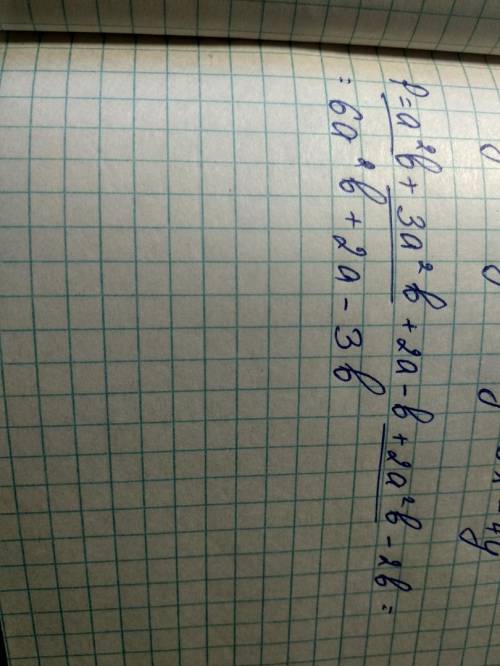 - 4y
P = a²b + 3a²b + 2a - b + 2a²b - 2b =
= 6a²b + 2a - 3b